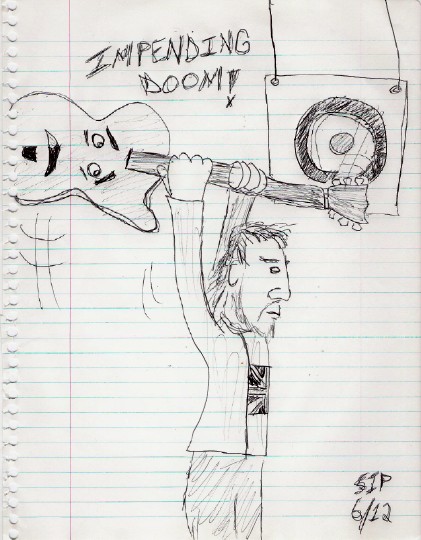 IMPENDING
DOOM!
SIP
6/12